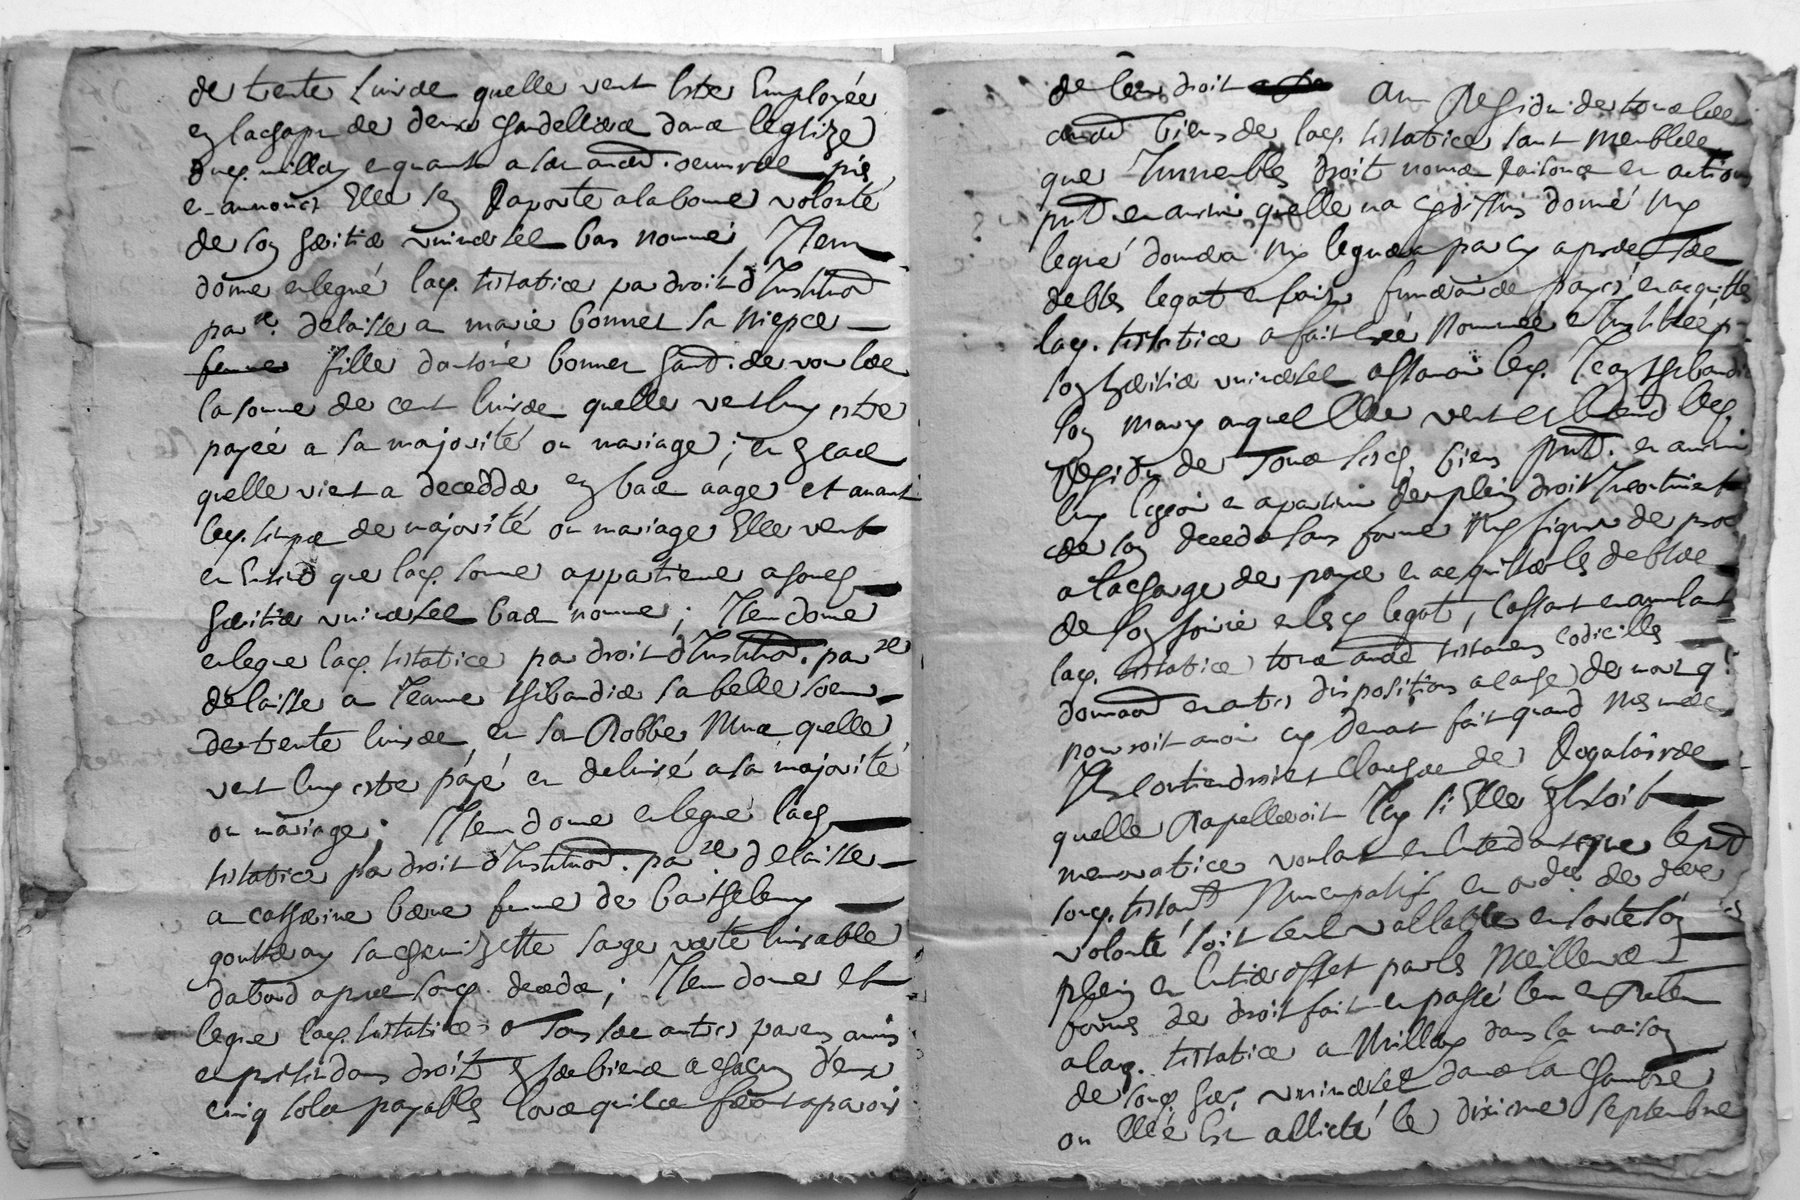 de trente livres quelle veut estre Employée
en lachapt de deux chandelliers dans leglize
dud. millau et quant a ses autres oeuvres pies
et annones Elle sen Raporte a la bonne volonté
de son heritier universel bas nommé, Item
donne et legué lad. testatrice par droit d'Institu̅on
par re. delaisse a marie bonnet sa niepce
fille dantoine bonnet de
la somme de cent livres quelle veut luy estre
payée a sa majorité ou mariage; en
quelle vient a decedder en bas aage et avant
led. temps de majorité ou mariage Elle veut
et Entend que lad. somme appartiene a soned.
heritier universel bas nommé; Item done
et legue lad. testatrice par droit d'Institu̅on. par re
delaisse a Jeanne thibaudie sa belle soeur
de trente livres et sa Robbe quelle
veut luy estre payé et delivré a sa majorité
ou mariage; Item done et legué lad.
testatrice par droit d'Institu̅on. par re delaisse
a catherine femme de barthelemy
sa chemizette sarge verte livrable
dabord apres soned. deceds; Item done et
legue lad. testatrice a Tous ses autres parens amis
et pretendans droit en ses biens a chacun deux
cinq sols payables lors quils fairont aparoir
de leur droit Au Residu de tous les
autres biens de lad. testatrice tant meubles
que Immeubles droit noms Raisons et actions
pnt̅. et avenir quelle na cy dessus donné ny
legué donera ny leguera par cy apres ses
debtes legat et frais funeraires payés et acquittés
lad. testatrice a fait creé Nommée et Instituée p.
son heritier universel assavoir led. Jean thibaudie
son mary auquel Elle veut et Entend led.
Residu de Tous sesd. biens pnt̅. et avenir
luy et apartenir de plein droit Incontinent
de son deceds sans forme ny figure de proces
a la charge de payer et acquitter les debtes
de son et lesd. legat, Cassant et anulant
lad. testatrice tous autres testamens codicilles
donnaon̅ et autres dispositions a cause de mort q.
pourroit avoir cy devant fait quand mesmes
Ils contiendroient clauses de Rogatoires
quelle Rapelleroit Icy si Elle Estoit
memoratrice voulant et Entendant que le pnt̅
soned. testant̅ Nuncupatif et ordre. de derre
volonté soit seul vallable et sorte son
plein et Entier effet par les Meilleures
formes de droit fait et passé leu et Releu
a lad. testatrice a Millau dans la maison
de soned. her. universel dans la chambre
ou elle est allictée le dixieme septembre